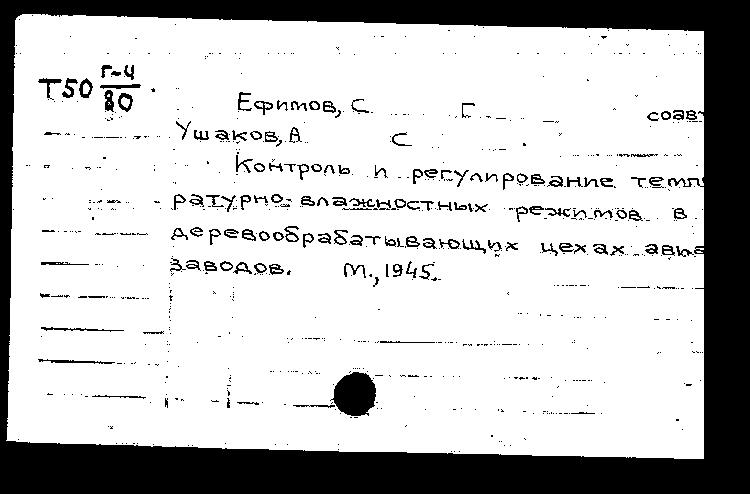 Т50 Г-4
80
Ефимов, С Г соавт
Ушаков, А С
Контроль и регулирование темпе
ратурно-влажностных режимов в
деревообрабатывающих цехах авиа
заводов. М., 1945.